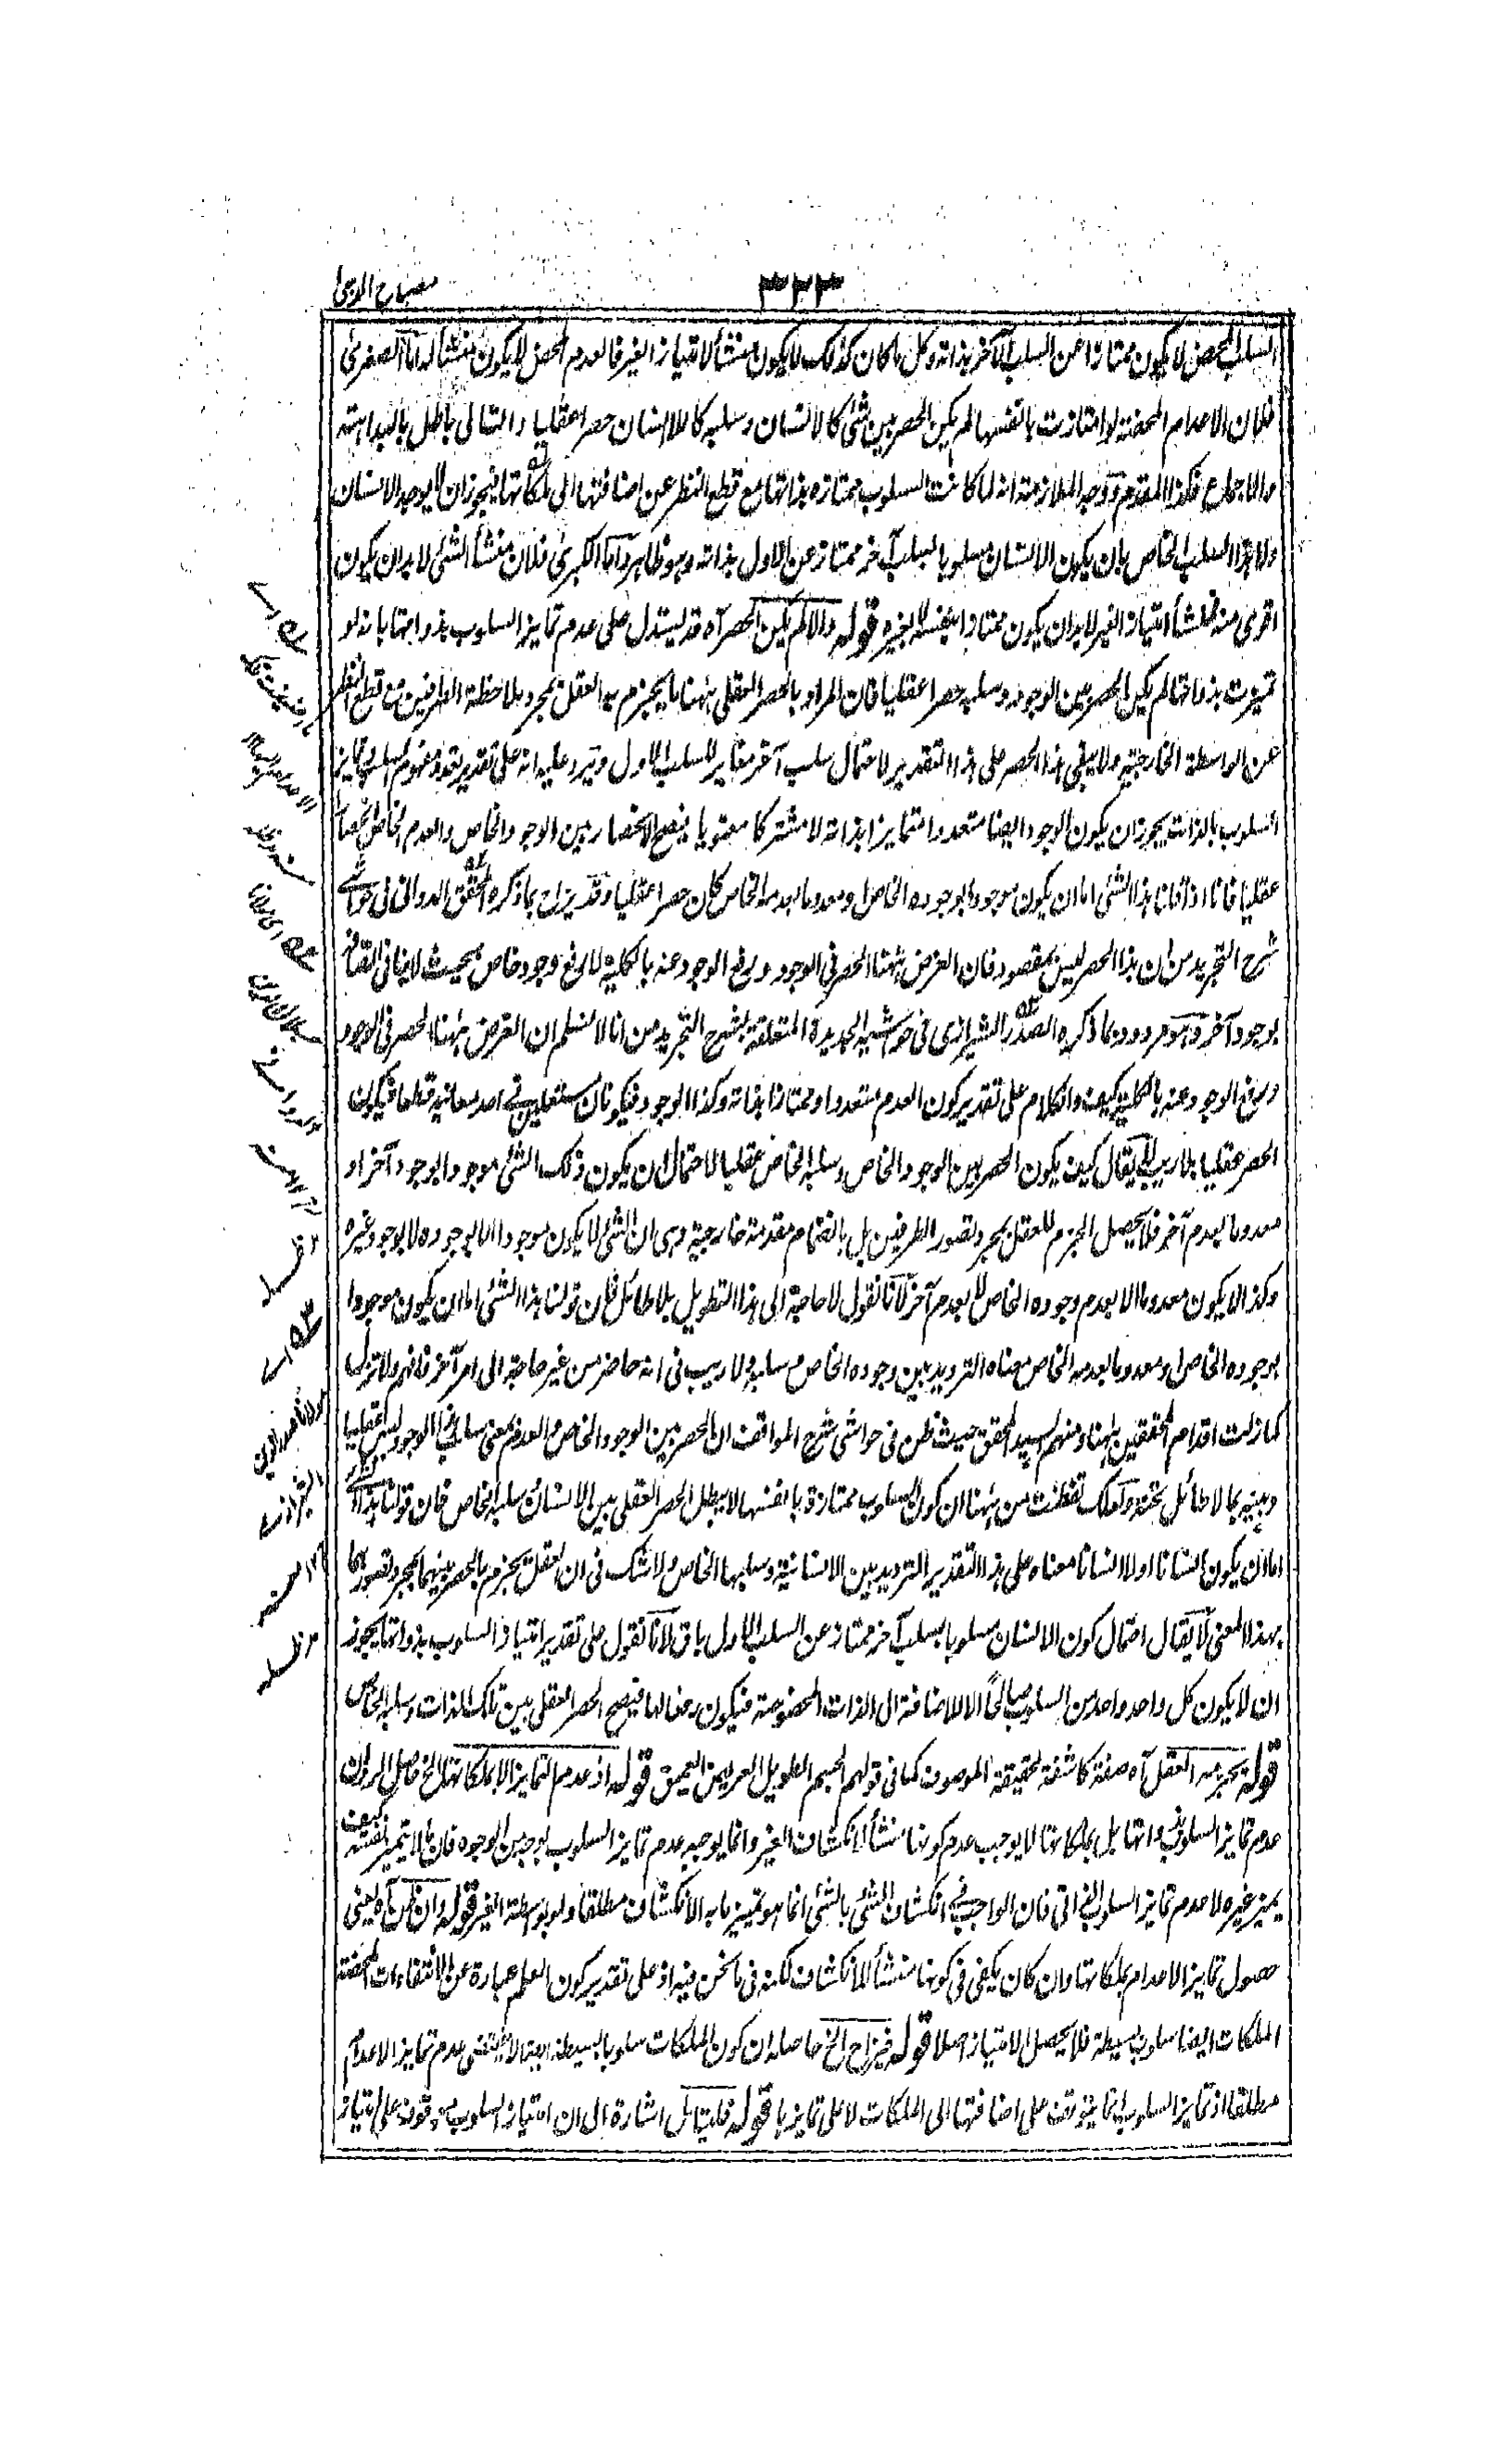 ٣٢٣
مصباح الدجى
السلب المحض لا يكون ممتازا عن السلب الآخر بذاته وكل ما كان كذلك لا يكون منشأ لامتياز الغير فالعدم المحض لا يكون منشأ له اما الصغرى
فلان الاعدام المحضة لو امتازت بانفسها لم يكن الحصر بين شئ كالانسان وسلبه كاللاانسان حصرا عقليا والتالى باطل بالبداهته
والاجماع فكذا المقدم ووجه الملازمة انه لما كانت السلوب ممتازه بذاتها مع قطع النظر عن اضافتها الى ملكاتها فيجوز ان لا يوجد الانسان
ولا هذا السلب الخاص بان يكون الانسان مسلوبا بسلب آخر ممتاز عن الاول بذاته وهو ظاهر واما الكبرى فلان منشأ الشئ لابد ان يكون
اقوى منه فمنشأ امتياز الغير لابد ان يكون ممتازا بنفسه لا بغيره قوله والا لم يكن الحصر آه قد يستدل على عدم تمايز السلوب بذواتها بانه لو
تميزت بذواتها لم يكن الحصر بين الوجود وسلبه حصرا عقليا فان المراد بالحصر العقلى ههنا ما يجزم به العقل بمجرد ملاحظة الطرفين مع قطع النظر
عن الواسطة الخارجية ولا يبقى هذا الحصر على هذا التقدير لاحتمال سلب آخر مغاير للسلب الاول ويرد عليه انه على تقدير تعدد مفهوم السلب وتمايز
السلوب بالذات يجوز ان يكون الوجود ايضا متعددا متمايزا بذاته لا مشتركا معنويا فيصح الانحصار بين الوجود الخاص والعدم الخاص انحصارا
عقليا فانا اذا قلنا هذا الشئ اما ان يكون موجودا بوجوده الخاص او معدوما بعدمه الخاص كان حصرا عقليا وقد يزاح بما ذكره المحقق الدوانى فى حواشى
شرح التجريد من ان هذا الحصر ليس بمقصود فان الغرض ههنا الحصر فى الوجود ورفع الوجود عنه بالكلية لا رفع وجود خاص بحيث لا ينافى اتصافه
بوجود آخر وهو مردود بما ذكره الصدر الشيرازى فى حواشيه الجديدة المتعلقة بشرح التجريد من انا لا نسلم ان الغرض ههنا الحصر فى الوجود
ورفع الوجود عنه بالكلية كيف والكلام على تقدير كون العدم متعددا وممتازا بذاته وكذا الوجود فيكونان مستعملين فى احد معانيه قطعا فيكون
الحصر عقليا بلا ريب لا يقال كيف يكون الحصر بين الوجود الخاص وسلبه الخاص عقليا لاحتمال ان يكون ذلك الشئ موجودا بوجود آخر او
معدوما بعدم آخر فلا يحصل الجزم للعقل بمجرد تصور الطرفين بل بانضمام مقدمة خارجية وهى ان الشئ لا يكون موجودا الا بوجوده لا بوجود غيره
وكذا لا يكون معدوما الا بعدم وجوده الخاص لا بعدم آخر لانا نقول لا حاجة الى هذا التطويل بلا طائل فان قولنا هذا الشئ اما ان يكون موجودا
بوجوده الخاص او معدوما بعدمه الخاص معناه الترديد بين وجوده الخاص وسلبه ولا ريب فى انه حاصر من غير حاجة الى امر آخر فافهم ولا تزل
كما زلت اقدام المحققين ههنا ومنهم السيد المحقق حيث ظن فى حواشى شرح المواقف ان الحصر بين الوجود الخاص والعدم بمعنى سلب هذا الوجود ليس عقليا
وبينه بما لا طائل تحته ولعلك تفطنت من ههنا ان كون السلوب ممتازة بانفسها لا يبطل الحصر العقلى بين الانسان وسلبه الخاص فان قولنا هذا الشئ
اما ان يكون انسانا او لا انسانا معناه على هذا التقدير الترديد بين الانسانية وسلبها الخاص ولا شك فى ان العقل يجزم بالحصر بينهما بمجرد تصورهما
بهذا المعنى لا يقال احتمال كون الانسان مسلوبا بسلب آخر ممتاز عن السلب الاول باق لانا نقول على تقدير امتياز السلوب بذواتها يجوز
ان لا يكون كل واحد واحد من السلوب صالحا الا للاضافة الى الذات المخصوصة فيكون رفعا لها فيصح الحصر العقلى بين تلك الذات وسلبه الخاص
قوله يجزم به العقل آه صفة كاشفة لحقيقة الموصوف كما فى قولهم الجسم الطويل العريض العميق قوله اذ عدم التمايز الا بملكاتها الخ حاصل الرد ان
عدم تمايز السلوب بذواتها بل بملكاتها لا يوجب عدم كونها منشأ لانكشاف الغير وانما يوجبه عدم تمايز السلوب بوجه من الوجوه فان ما لا يتميز بنفسه كيف
يميز غيره لا عدم تمايز السلوب الذاتى فان الواجب فى انكشاف الشئ بالشئ انما هو تميز ما به الانكشاف مطلقا ولو بواسطة الغير قوله وان ظن آه يعنى
حصول تمايز الاعدام بملكاتها وان كان يكفى فى كونها منشأ للانكشاف لكنه فى ما نحن فيه اذ على تقدير كون العلم عبارة عن الانتفاءات المحضة
الملكات ايضا سلوب بسيطة فلا يحصل الامتياز اصلا قوله فيزاح الخ حاصله ان كون الملكات سلوبا بسيطة ايضا لا يقتضى عدم تمايز الاعدام
مطلقا اذ تمايز السلوب انما يتوقف على اضافتها الى الملكات لا على تمايزها قوله فليتأمل اشارة الى ان امتياز السلوب موقوف على امتياز